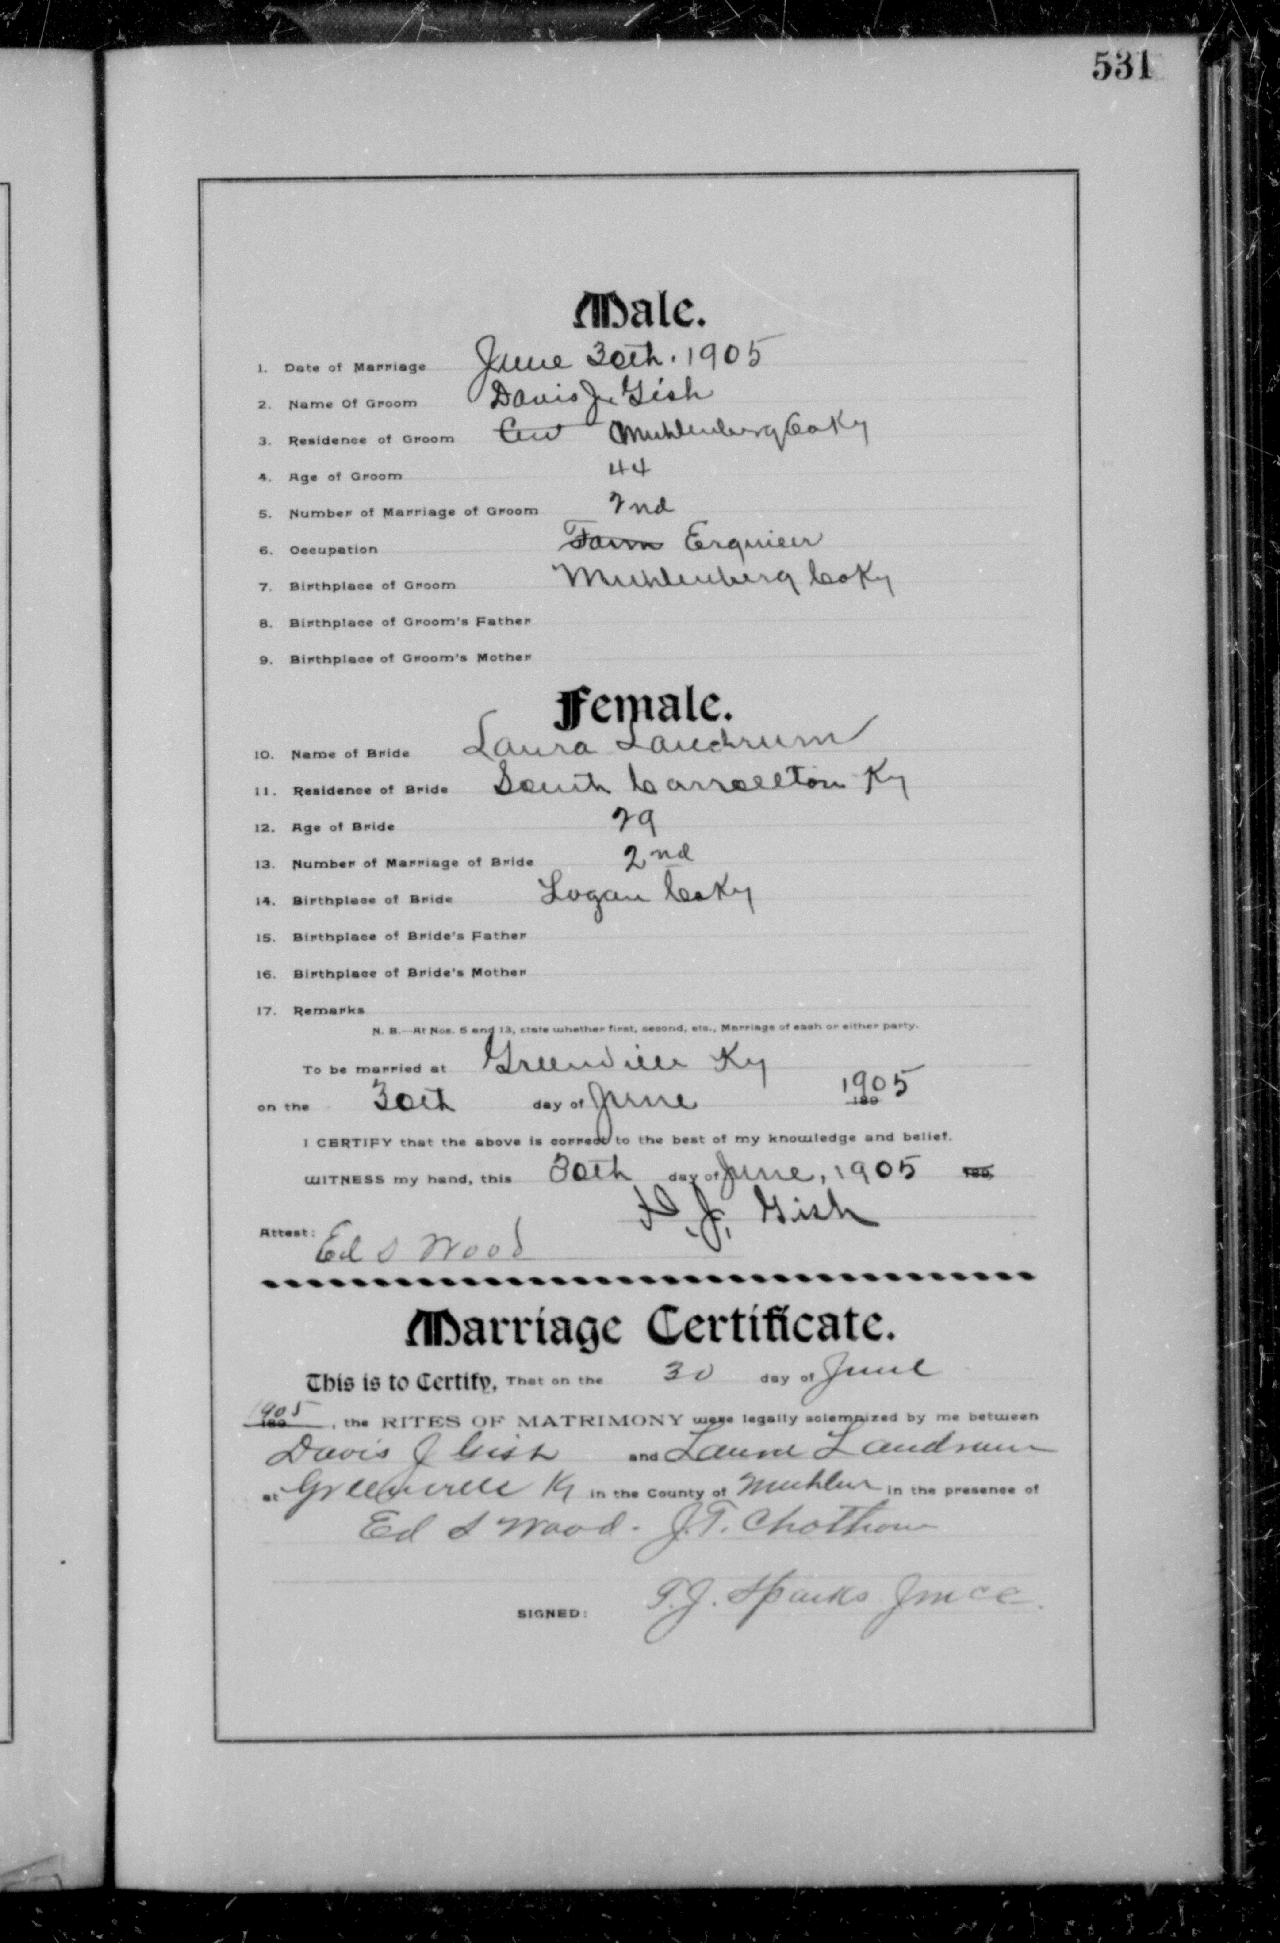 531
Male.
1. Date of Marriage June 30th. 1905
2. Name Of Groom Davis J. Gish
3. Residence of Groom Cen Muhlenberg Co Ky
4. Age of Groom 44
5. Number of Marriage of Groom 2nd
6. Occupation Farm
7. Birthplace of Groom Muhlenberg Co Ky
8. Birthplace of Groom's Father
9. Birthplace of Groom's Mother
Female.
10. Name of Bride Laura Landrum
11. Residence of Bride South Carrollton Ky
12. Age of Bride 29
13. Number of Marriage of Bride 2nd
14. Birthplace of Bride Logan Co Ky
15. Birthplace of Bride's Father
16. Birthplace of Bride's Mother
17. Remarks
N. B.—At Nos. 5 and 13, state whether first, second, etc., Marriage of each or either party.
To be married at Greenville Ky
on the 30th day of June 1905 189
I CERTIFY that the above is correct to the best of my knowledge and belief.
WITNESS my hand, this 30th day of June, 1905 189,
D. J. Gish
Attest: Ed S Wood
Marriage Certificate.
This is to Certify, That on the 30 day of June
1905 189 , the RITES OF MATRIMONY were legally solemnized by me between
Davis J Gish and Laura Landrum
at Greenville Ky in the County of Muhlen in the presence of
Ed S Wood. J.T. Chothom
SIGNED: T.J. Sparks J m c c.